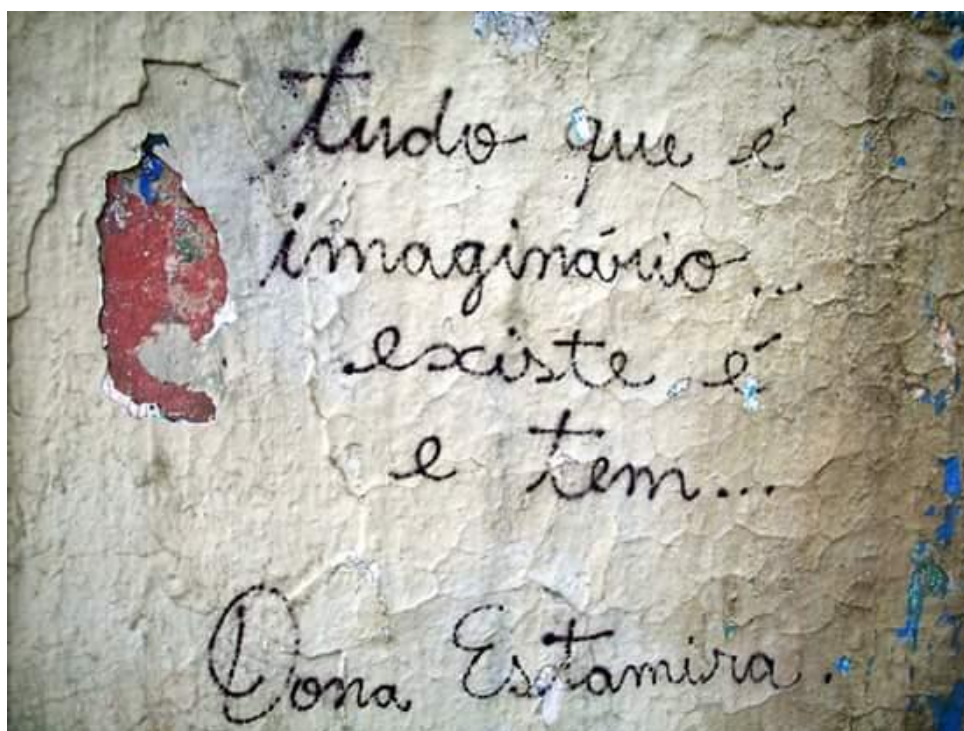 tudo que é
imaginário...
existe, é
e tem...
Dona Estamira.